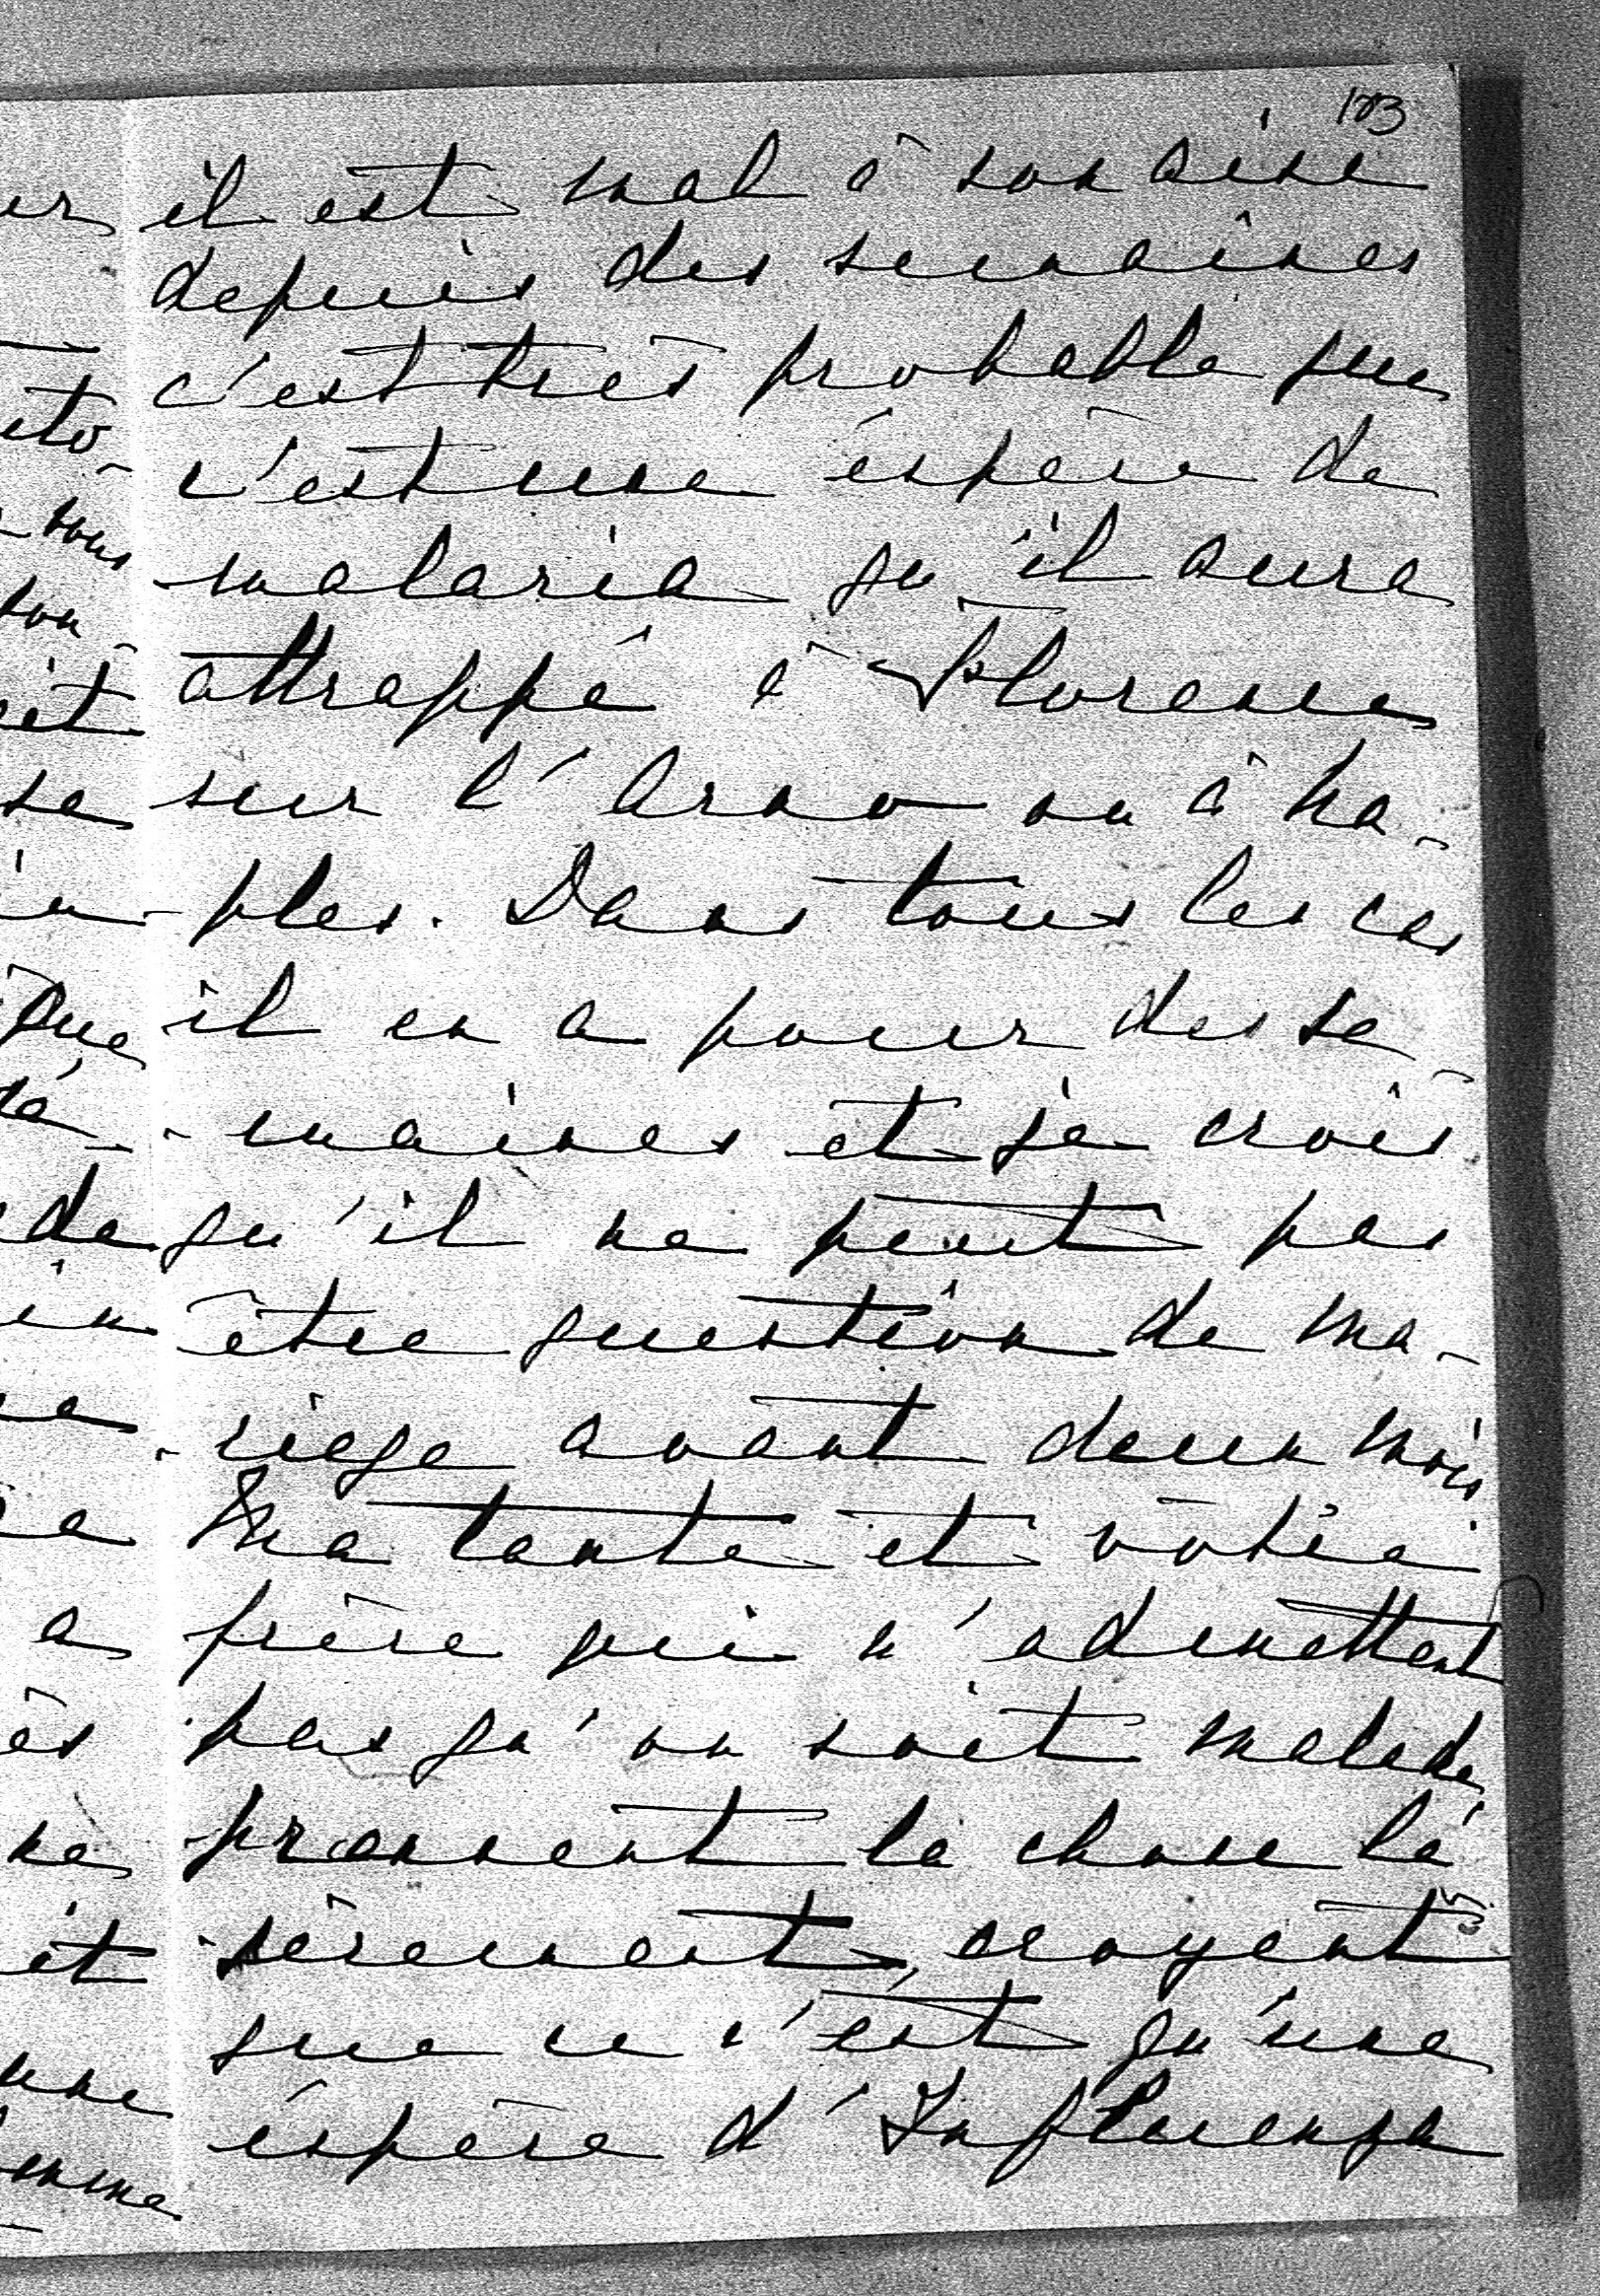 103
il est mal à son aise
depuis des semaines
c'est très probable que
c'est une éspèce de
malaria qu'il aura
attrappé à Florence
sur l'Arno ou à Na-
-ples. Dans tous les cas
il en a pour des se
-maines et je crois
qu'il ne peut pas
être question de ma-
-riage avant deux mois
Ma tante et votre
frère qui n'admettent
pas qu'on soit malade,
prennent la chose lé
-gèrement, croyent
que ce n'est qu'une
éspèce d'Influenza